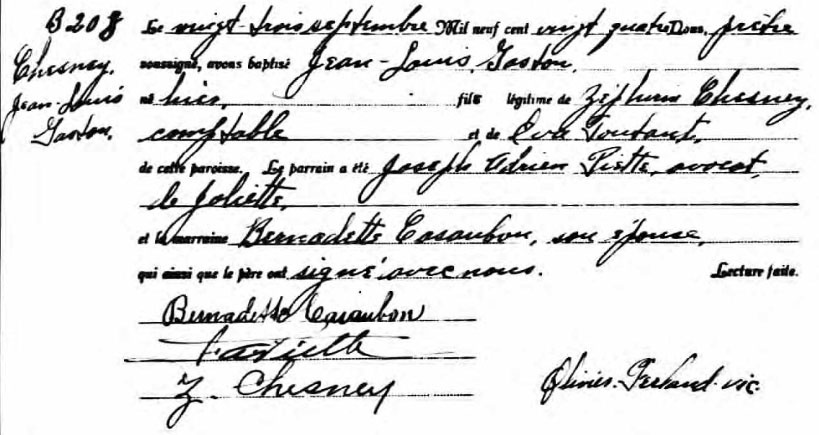 B 208
Chesney,
Jean-Louis
Gaston.
Le vingt-trois septembre Mil neuf cent vingt quatre Nous, prêtre
soussigné, avons baptisé Jean-Louis, Gaston,
né hier, fils légitime de Zéphirin Chesney,
comptable et de Eva Toutant,
de cette paroisse. Le parrain a été Joseph Adrien Piette, avocat,
de Joliette,
et la marraine Bernadette Casaubon, son épouse,
qui ainsi que le père ont signé avec nous. Lecture faite.
Bernadette Casaubon
Piette
Z. Chesney
Olivier Ferland vic.